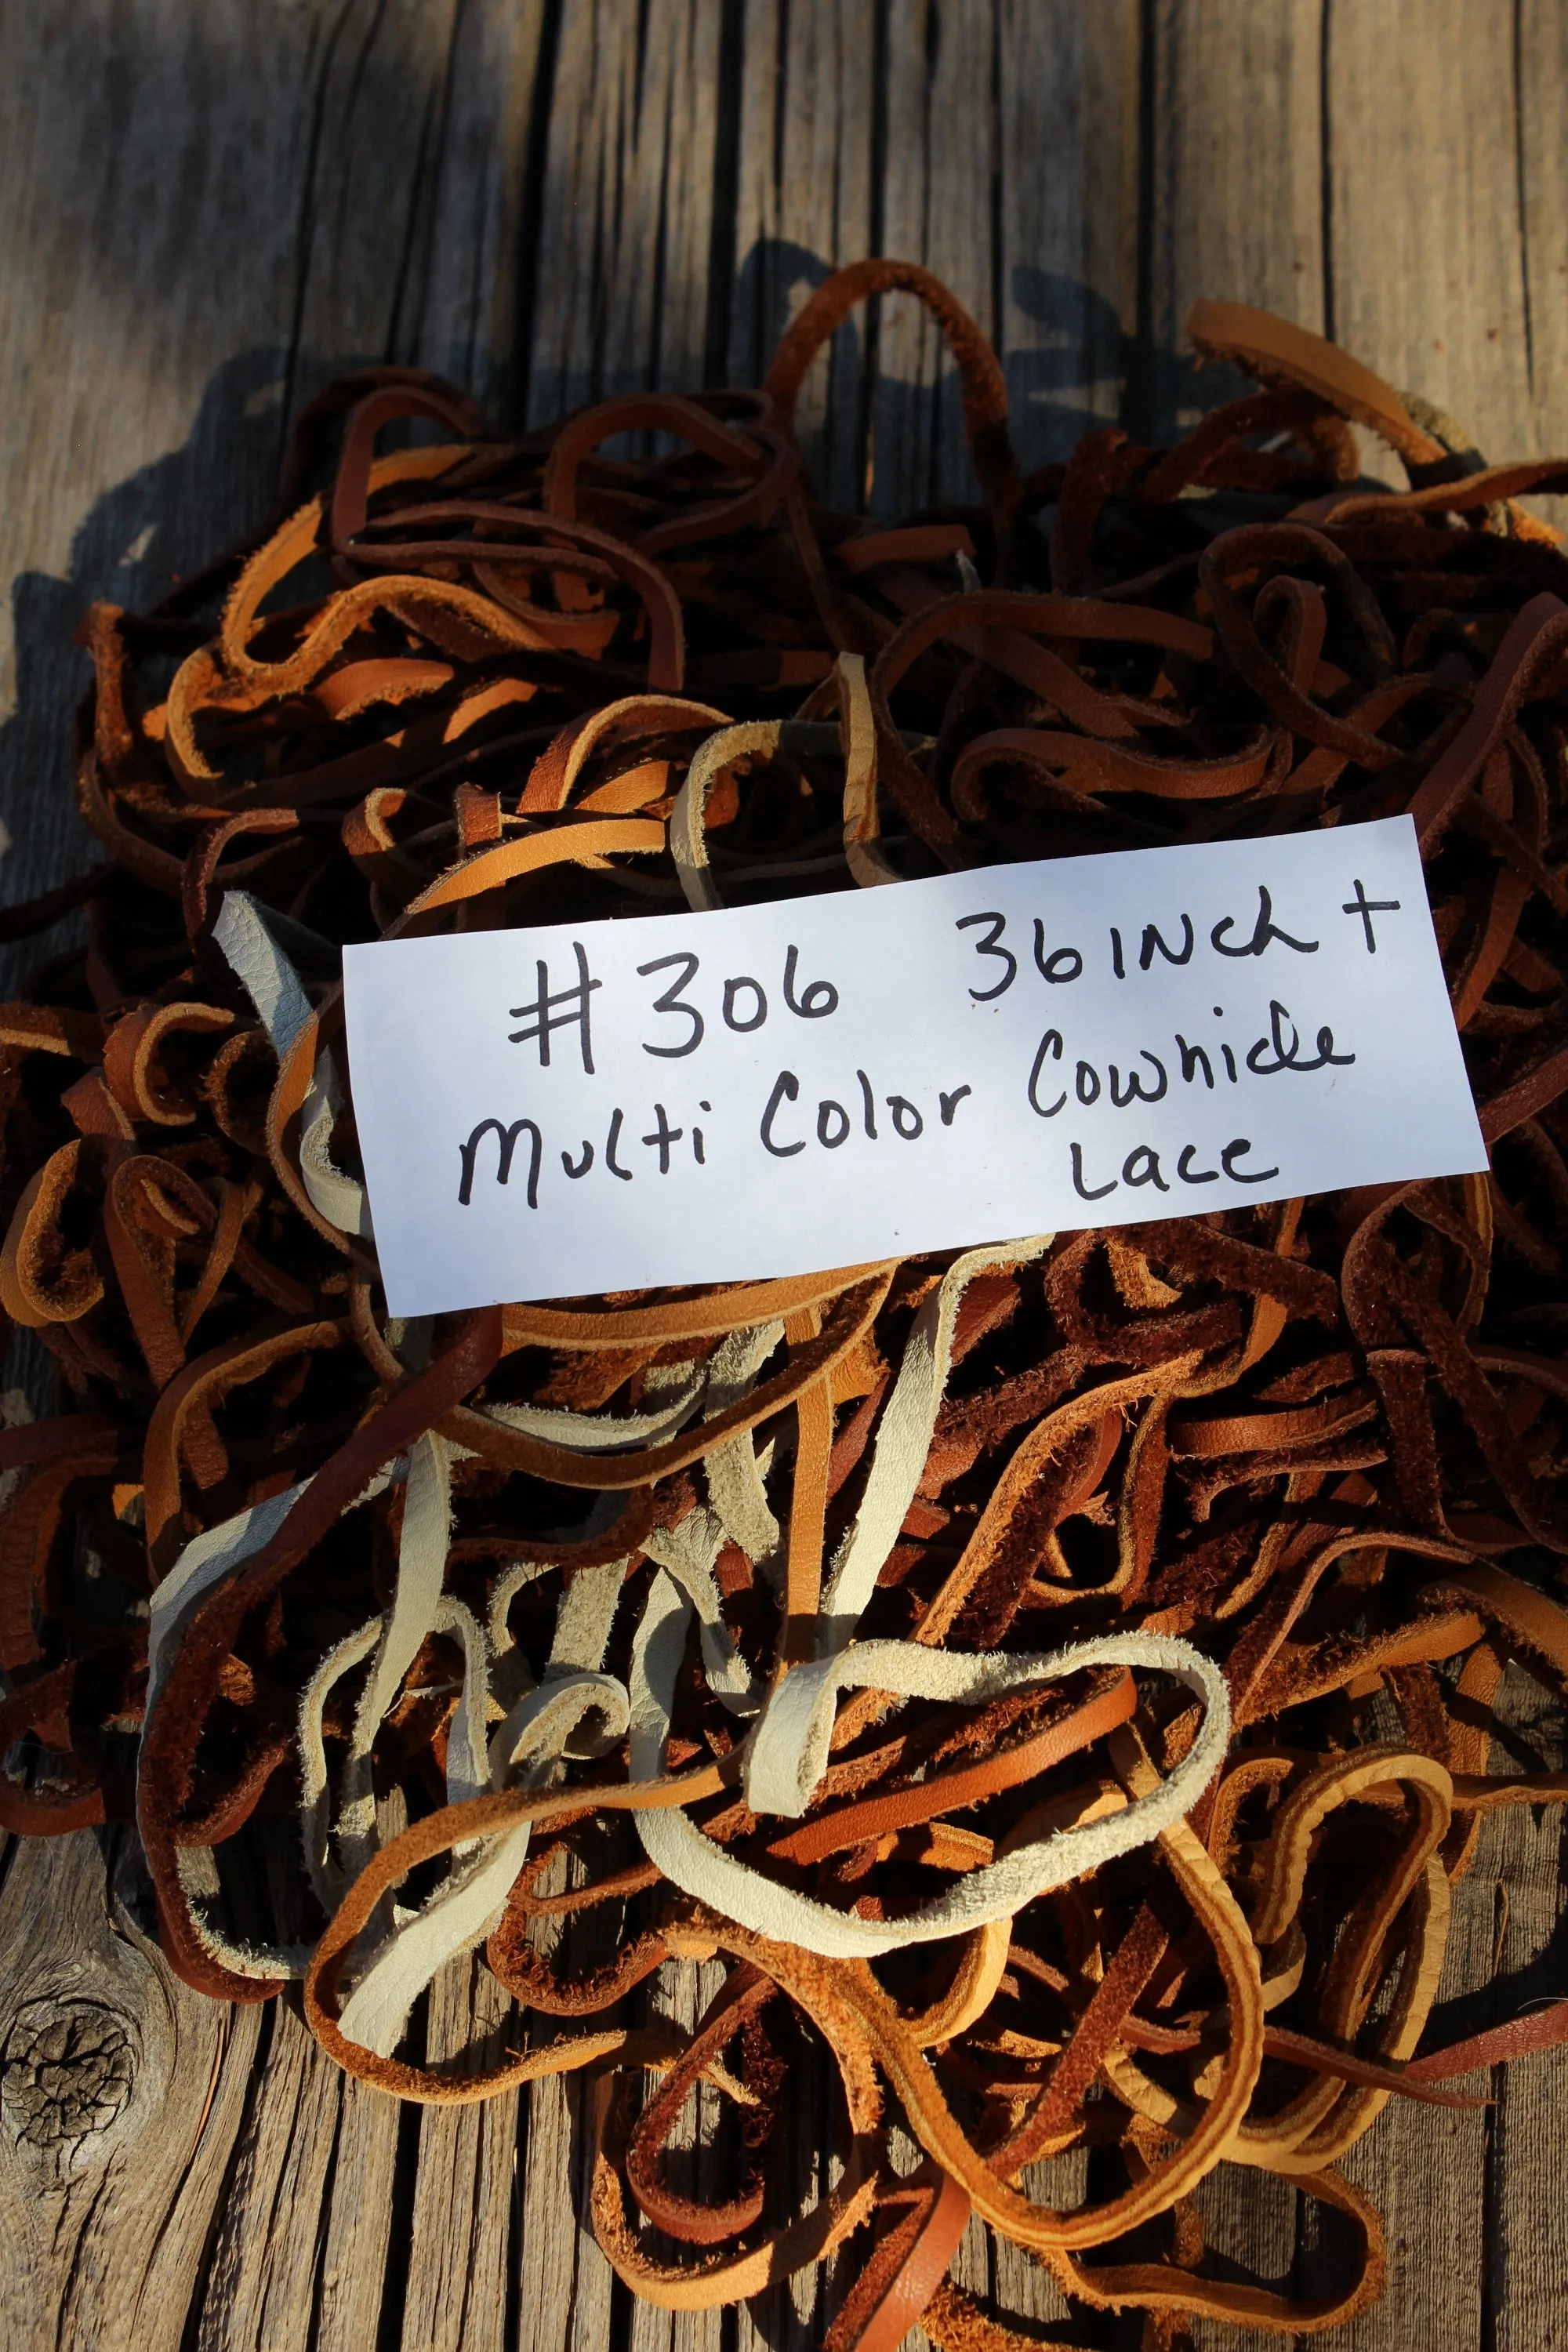 #306 36 INch +
Multi Color Cowhide
Lace